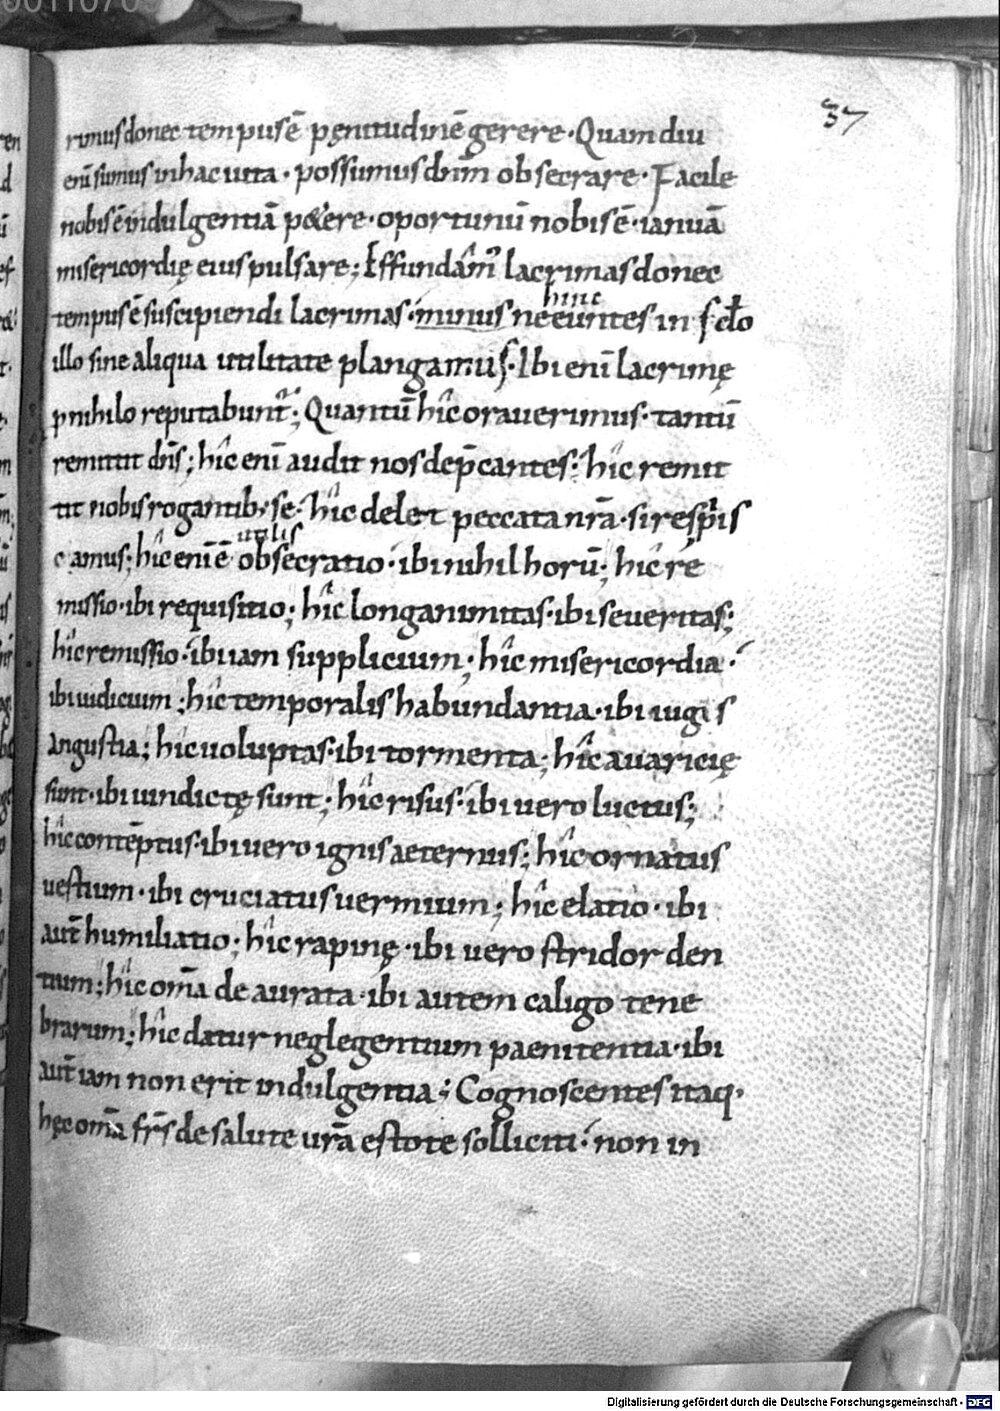 37
rimus donec tempus ē pęnitudinē gerere· Quam diu
enī sumus in hac uita· possumus dnm̄ obsecrare· Facile
nobis ē indulgentiā p&ere· oportunū nobis ē· ianuā
misericordię eius pulsare; Effundam̄ lacrimas donec
tempus ē suscipiendi lacrimas· minus ne euntes in scło
hinc
illo sine aliqua utilitate plangamus· Ibi enī lacrimę
pnihilo reputabunt̄; Quantū hic orauerimus· tantū
remittit dn̄s; hic enī audit nos dep̄cantes· hic remit
tit nobis rogantib; se· hic delet peccata nr̄a· si respis
camus; hic enī ē obsecratio· ibi nihil horū; hic re
utilis
missio· ibi requisitio; hic longanimitas· ibi seueritas;
hic remissio· ibi iam supplicium; hic misericordia·
ibi iudicium; hic temporalis habundantia· ibi iugis
angustia; hic uoluptas· ibi tormenta; hic auaricię
sunt· ibi uindictę sunt; hic risus· ibi uero luctus;
hic contēptus· ibi uero ignis aeternus; hic ornatus
uestium· ibi cruciatus uermium; hic elatio· ibi
aut̄ humiliatio; hic rapinę· ibi uero stridor den
tium; hic om̄a deaurata· ibi autem caligo tene
brarum; hic datur neglegentium paenitentia· ibi
aut̄ iam non erit indulgentia; Cognoscentes itaq·
hęc om̄a fr̄s de salute ur̄a estote solliciti· non in
Digitalisierung gefördert durch die Deutsche Forschungsgemeinschaft - DFG